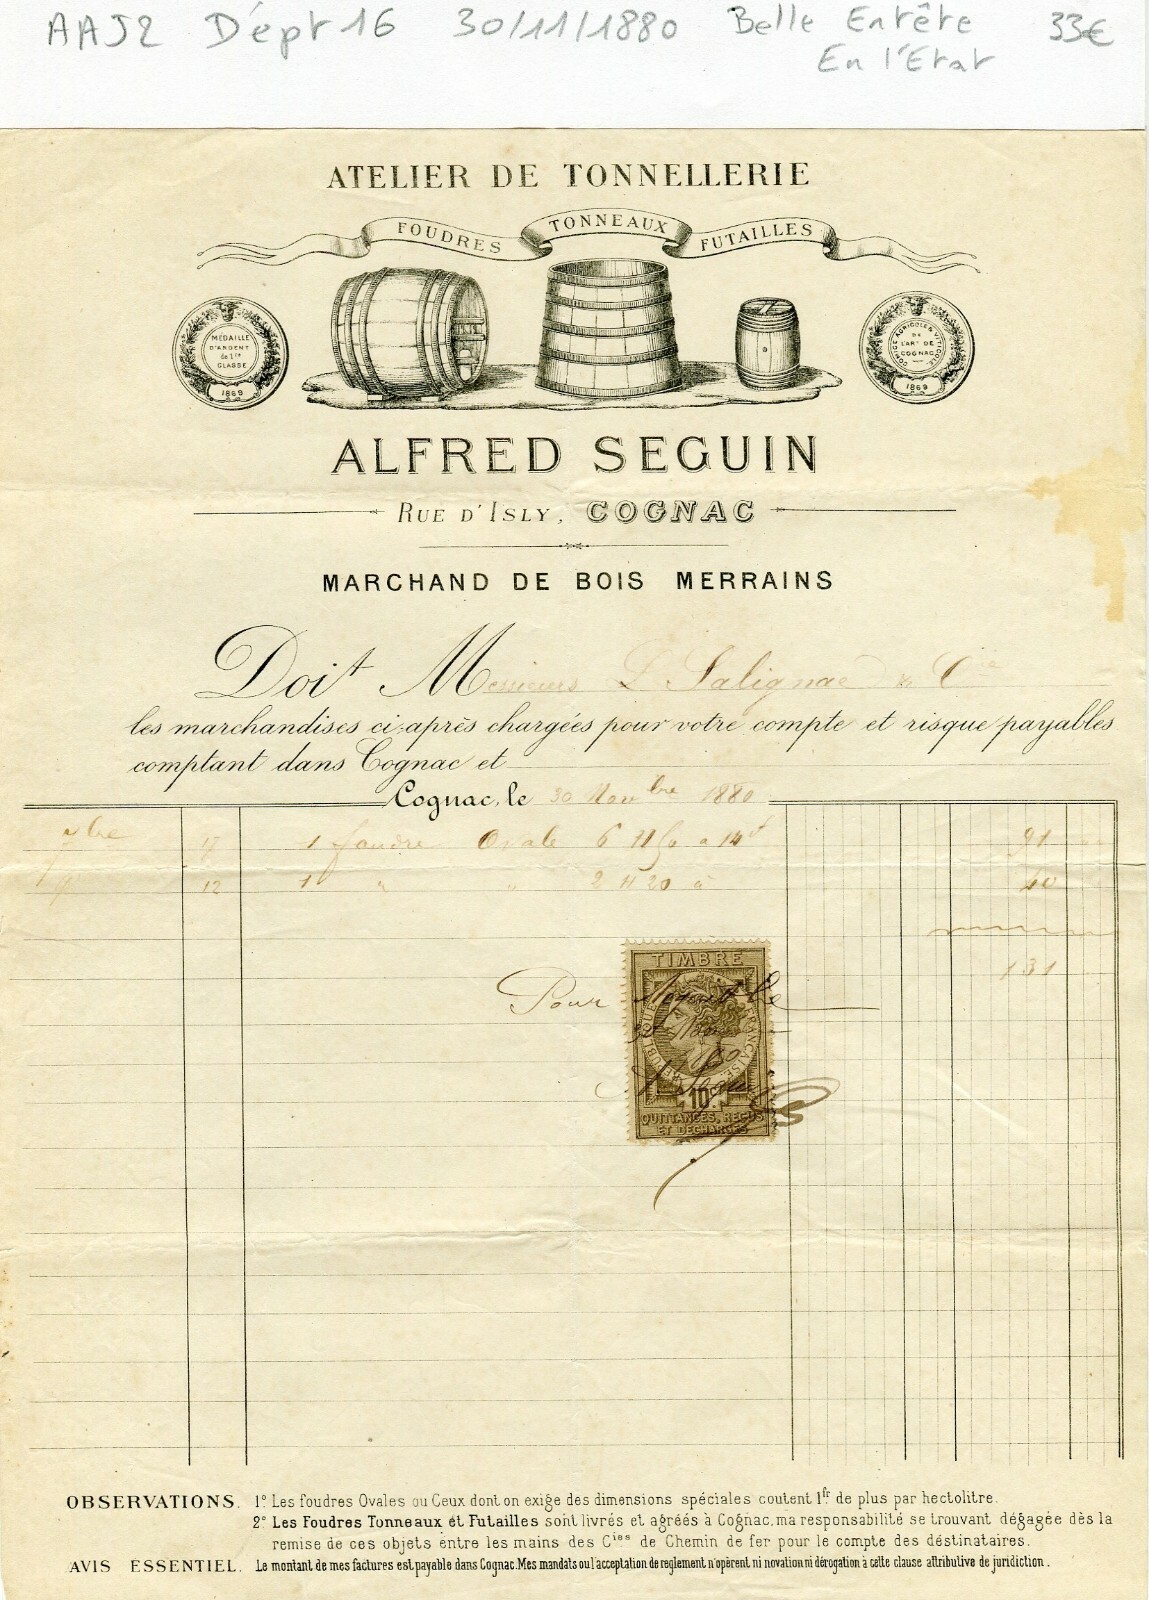 AAJ2 Dépt 16 30/11/1880 Belle Entête 33€
En l'Etat
ATELIER DE TONNELLERIE
FOUDRES TONNEAUX FUTAILLES
MÉDAILLE
D'ARGENT
de 1re
CLASSE
1869
COMICE AGRICOLE & VITICOLE
DE
L'ARt DE
COGNAC
1869
ALFRED SEGUIN
RUE D'ISLY, COGNAC
MARCHAND DE BOIS MERRAINS
Doit Messieurs L Salignac & Cie
les marchandises ci-après chargées pour votre compte et risque payables
comptant dans Cognac et
Cognac, le 30 Novbre 1880
7bre 17 1 foudre Ovale 6 H 50 a 14f 91
12 1 " " 2 H 20 a 40
131
TIMBRE
Pour Acquit
RÉPUBLIQUE FRANÇAISE
10c
QUITTANCES, REÇUS
ET DÉCHARGES
OBSERVATIONS. 1º Les foudres Ovales ou Ceux dont on exige des dimensions spéciales coutent 1fr de plus par hectolitre.
2º Les Foudres Tonneaux et Futailles sont livrés et agréés à Cognac, ma responsabilité se trouvant dégagée dès la
remise de ces objets entre les mains des Cies de Chemin de fer pour le compte des déstinataires.
AVIS ESSENTIEL. Le montant de mes factures est payable dans Cognac. Mes mandats ou l'acceptation de reglement n'opèrent ni novation ni dérogation à cette clause attributive de juridiction.